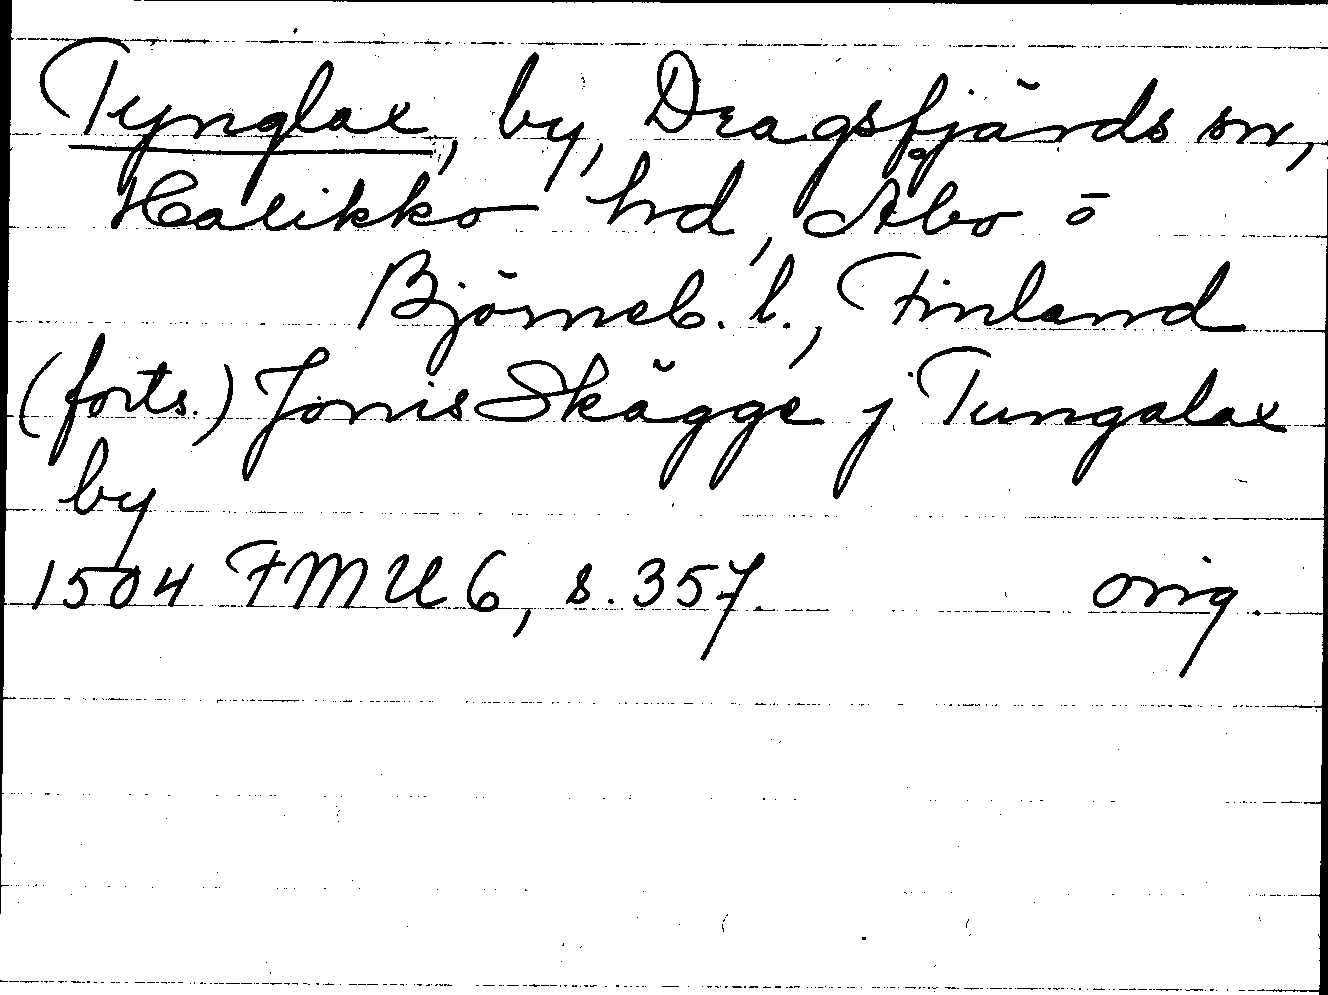 Tynglax, by, Dragsfjärds sn,
Halikko hd, Åbo o
Björneb. l., Finland
(forts.) Jönis Skägge j Tungalax
by
1504 FMU 6, s. 357. orig.